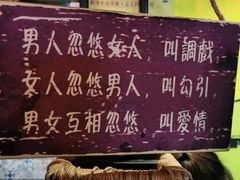 男人忽悠女人，叫調戲
女人忽悠男人，叫勾引。
男女互相忽悠，叫愛情。